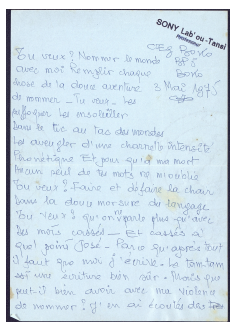 SONY Lab'ou-Tansi
Tu veux? Nommer le monde
avec moi Remplir chaque
chose de la douce aventure
de nommer _ Tu veux _ Les
suffoquer Les insoleiller
Dans le tic au tac du monde
Les aveugler d'une charnelle intensité
Phonétique Et pour qu'à ma mort
Aucun seul de tes mots ne m'oublie
Tu veux? Faire et défaire la chair
Dans la douce morsure du langage
Tu veux? qu'on parle plus qu'avec
des mots cassés _ Et cassés à
quel point José _ Parce qu'après tout
il faut que moi j'écrive _ Le tam-tam
est une écriture bien sûr _ Mais que
peut-il bien avoir avec ma violence
de nommer? J'en ai écouté des